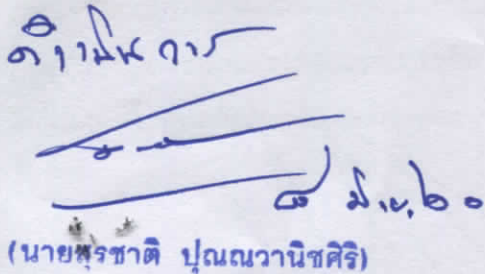 ดำเนินการ
๘ มิ.ย. ๖๐
(นายสุรชาติ ปุณณวานิชศิริ)